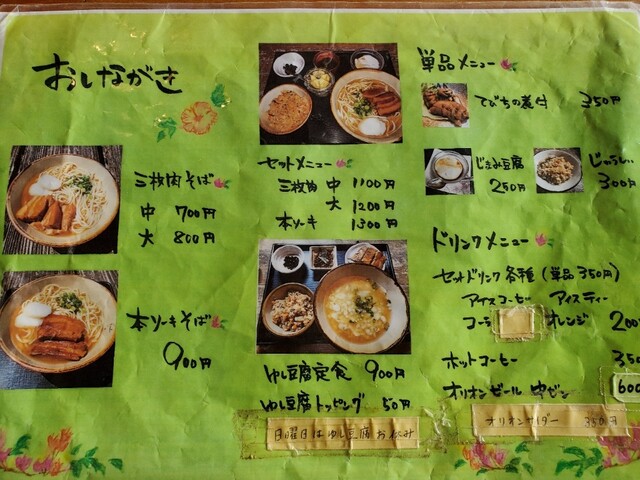 おしながき
三枚肉そば
中 700円
大 800円
本ソーキそば
900円
セットメニュー
三枚肉 中 1100円
大 1200円
本ソーキ 1300円
ゆし豆腐定食 900円
ゆし豆腐トッピング 50円
日曜日はゆし豆腐お休み
単品メニュー
てびちの煮付 350円
じまみ豆腐
250円
じゅうしい
300円
ドリンクメニュー
セットドリンク各種(単品350円)
アイスコーヒー アイスティー
コーラ オレンジ 200
ホットコーヒー 350
オリオンビール 中ビン 600
オリオンサイダー 350円